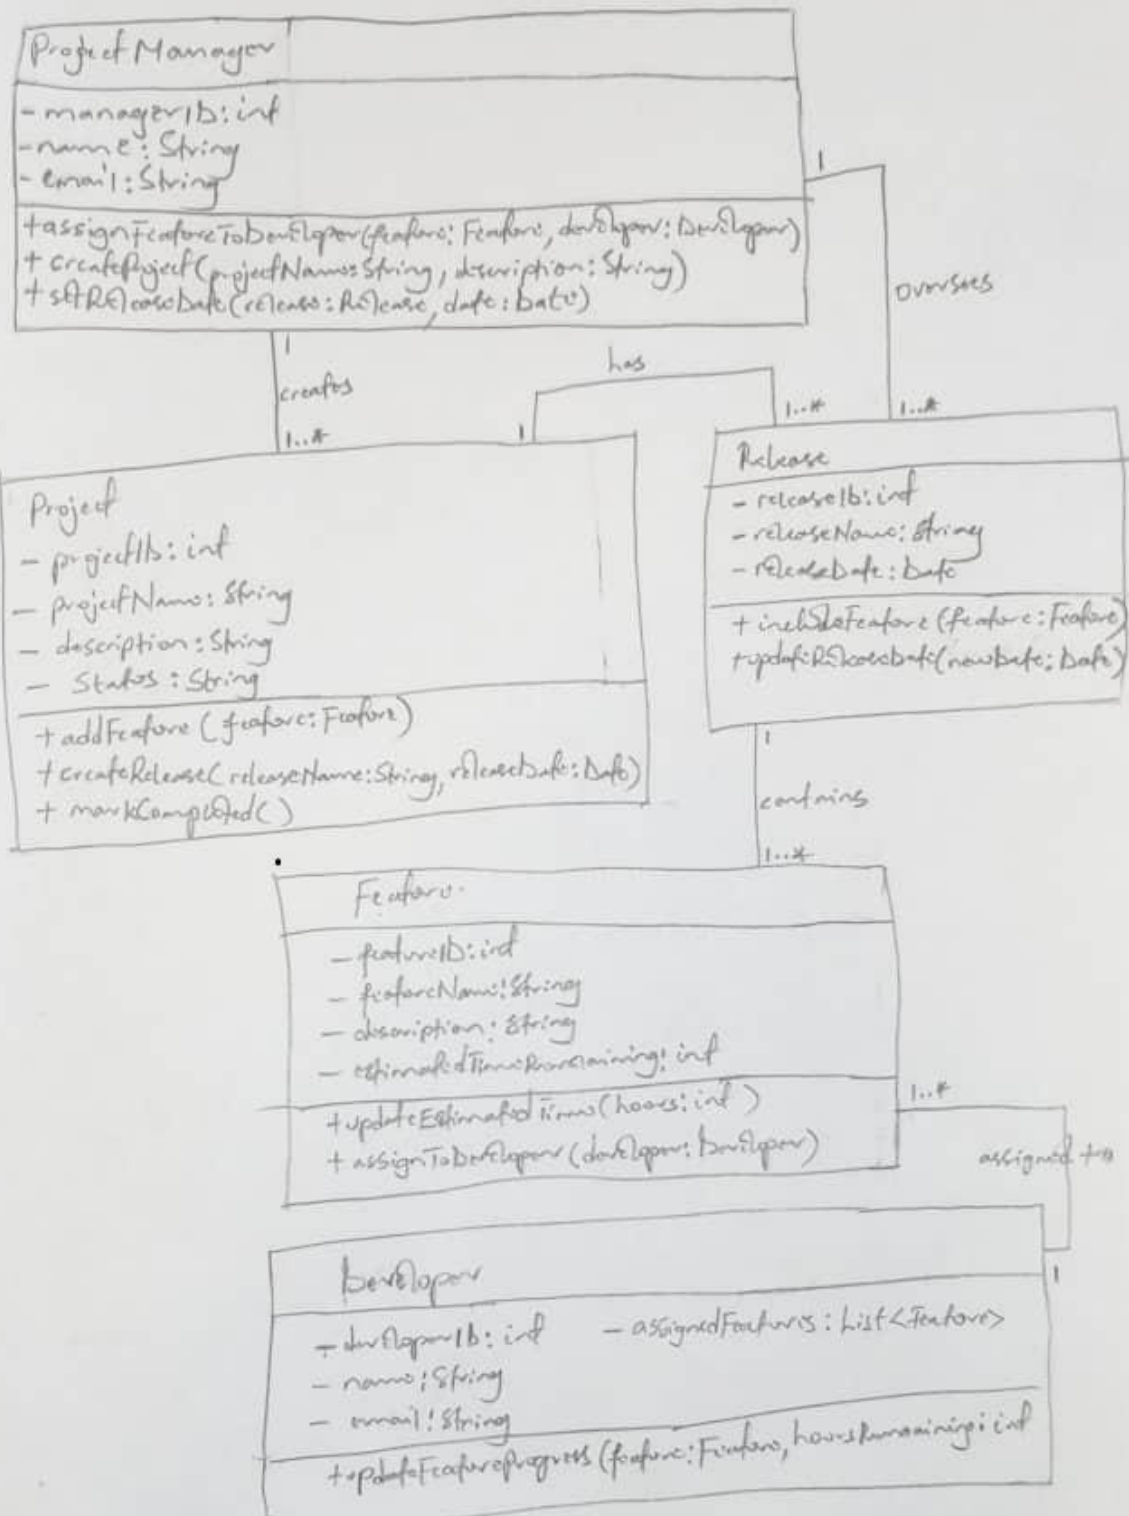 Project Manager
- managerID: int
- name: String
- email: String
+ assignFeatureToDeveloper(feature: Feature, developer: Developer)
+ createProject(projectName: String, description: String)
+ setReleaseDate(release: Release, date: Date)
1
oversees
1..*
1
creates
1..*
has
1
1..*
Project
- projectID: int
- projectName: String
- description: String
- Status: String
+ addFeature (feature: Feature)
+ createRelease(releaseName: String, releaseDate: Date)
+ markCompleted()
Release
- releaseID: int
- releaseName: String
- releaseDate: Date
+ includeFeature (feature: Feature)
+ updateReleaseDate(newDate: Date)
1
contains
1..*
Feature
- featureID: int
- featureName: String
- description: String
- estimatedTimeRemaining: int
+ updateEstimatedTime(hours: int)
+ assignToDeveloper(developer: Developer)
1..*
assigned to
1
Developer
- developerID: int - assignedFeatures: List<Feature>
- name: String
- email: String
+ updateFeatureProgress (feature: Feature, hoursRemaining: int